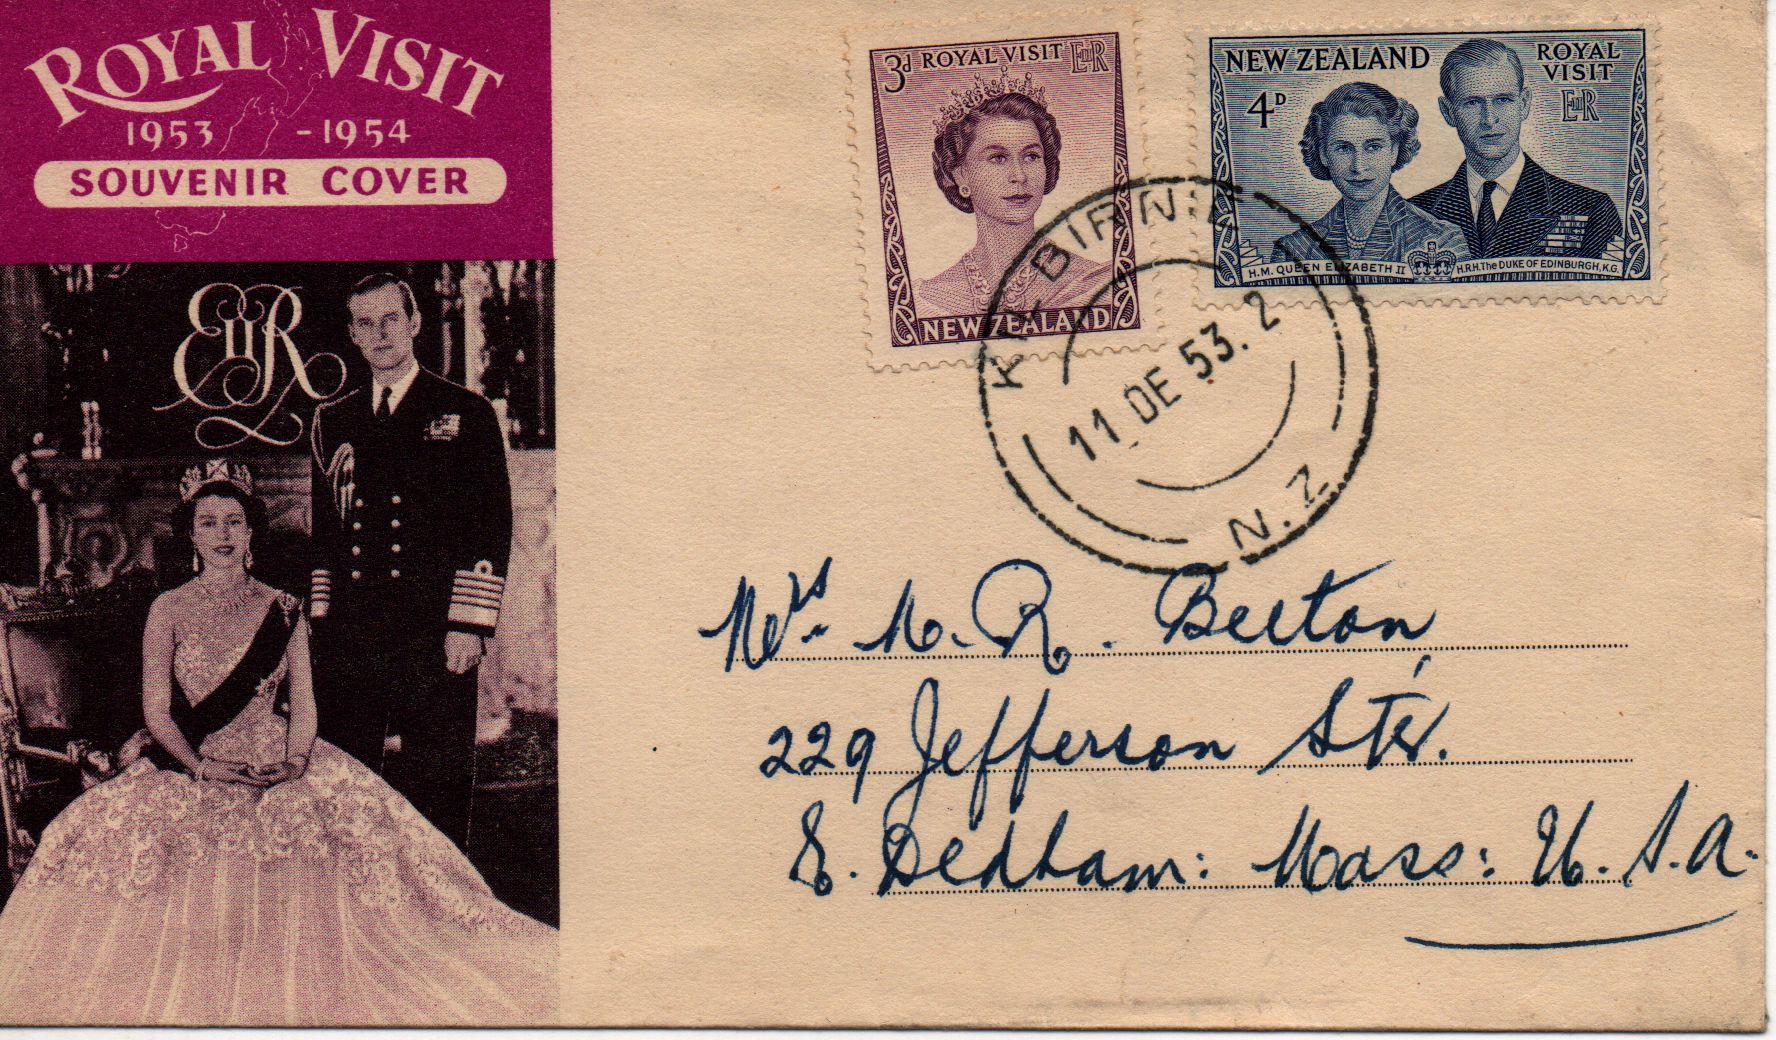 ROYAL VISIT
1953 - 1954
SOUVENIR COVER
EIIR
3d ROYAL VISIT EIIR
NEW ZEALAND
NEW ZEALAND
ROYAL
VISIT
4D
EIIR
H.M. QUEEN ELIZABETH II
H.R.H. The DUKE OF EDINBURGH, K.G.
KILBIRNIE
11 DE 53. 2
N.Z.
Mrs. M. R. Beeton
229 Jefferson Str.
E. Dedham: Mass: U.S.A.